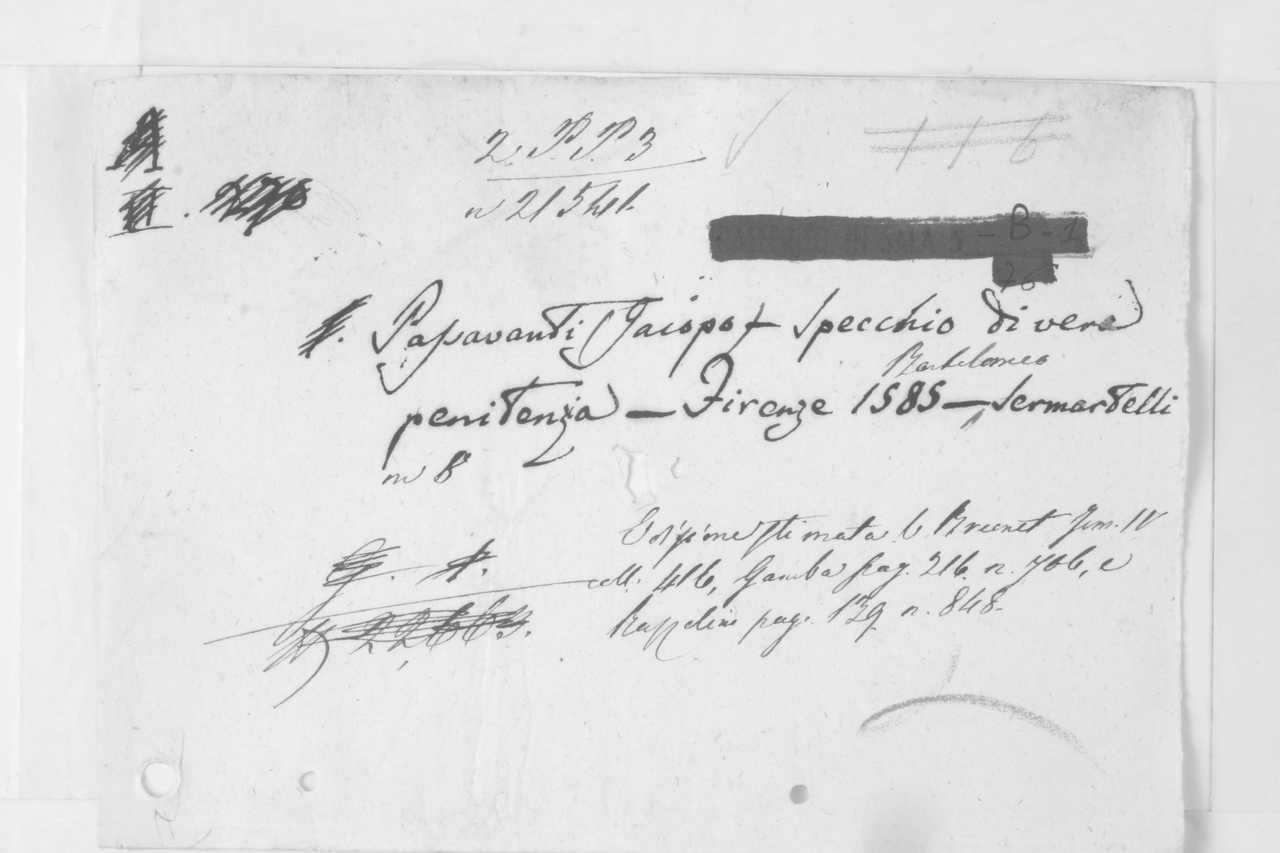 2. P. P. 3
n 21541.
1 1 6
- B - 1
26
Passavanti (Jacopo) - Specchio di vera
Bartolomeo
penitenza - Firenze 1585 - Sermartelli
in 8°
Edizione stimata V. Brunet Tom. IV
coll. 416, Gamba pag. 216. n. 706, e
Razzolini pag. 139 n. 848.
22663.